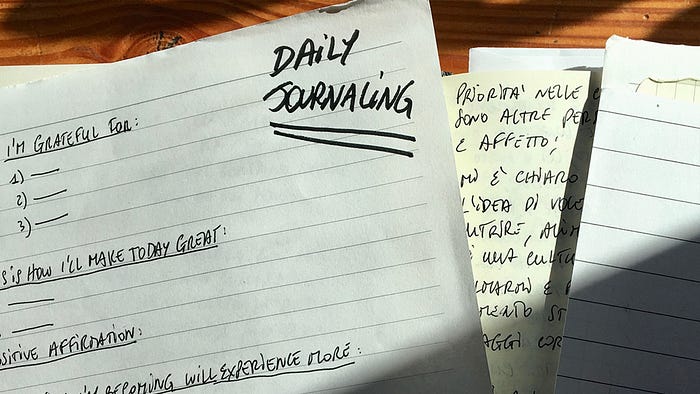 DAILY
JOURNALING
I'M GRATEFUL FOR:
1) —
2) —
3) —
S IS HOW I'LL MAKE TODAY GREAT:
SITIVE AFFIRMATION:
I'M BECOMING WILL EXPERIENCE MORE:
PRIORITA' NELLE
SONO ALTRE PER
E AFFETTO;
È CHIARO
L'IDEA DI VOLE
È UNA CULTU